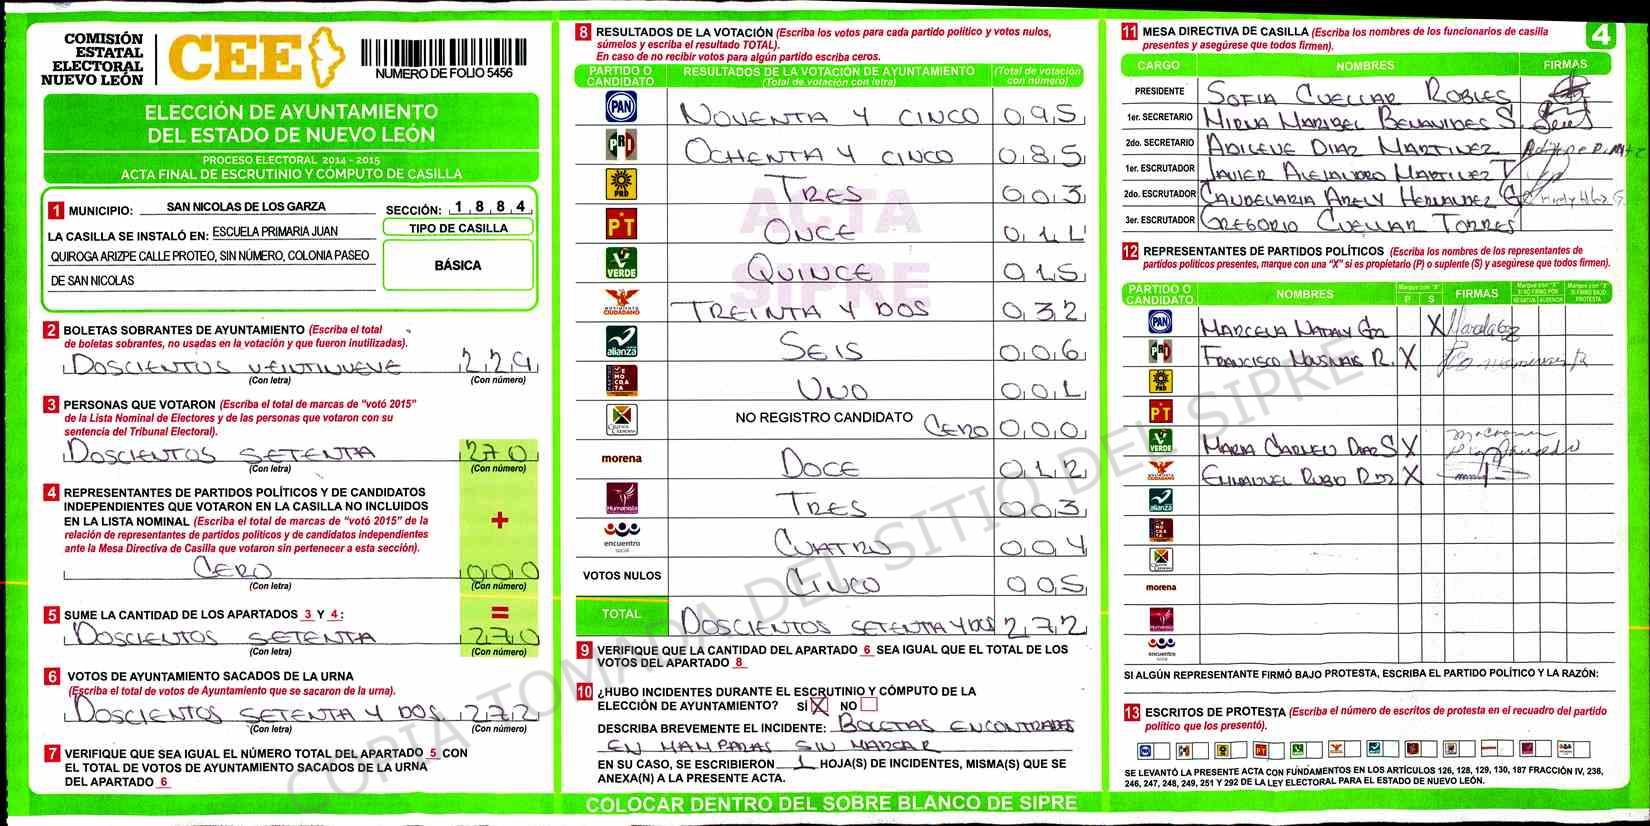 COMISIÓN
ESTATAL
ELECTORAL
NUEVO LEÓN
CEE
NUMERO DE FOLIO 5456
ELECCIÓN DE AYUNTAMIENTO
DEL ESTADO DE NUEVO LEÓN
PROCESO ELECTORAL 2014 - 2015
ACTA FINAL DE ESCRUTINIO Y CÓMPUTO DE CASILLA
1 MUNICIPIO: SAN NICOLAS DE LOS GARZA SECCIÓN: 1 8 8 4
LA CASILLA SE INSTALÓ EN: ESCUELA PRIMARIA JUAN
QUIROGA ARIZPE CALLE PROTEO, SIN NÚMERO, COLONIA PASEO
DE SAN NICOLAS
TIPO DE CASILLA
BÁSICA
2 BOLETAS SOBRANTES DE AYUNTAMIENTO (Escriba el total
de boletas sobrantes, no usadas en la votación y que fueron inutilizadas).
DOSCIENTOS VEINTINUEVE 229
(Con letra) (Con número)
3 PERSONAS QUE VOTARON (Escriba el total de marcas de "votó 2015"
de la Lista Nominal de Electores y de las personas que votaron con su
sentencia del Tribunal Electoral).
DOSCIENTOS SETENTA 270
(Con letra) (Con número)
4 REPRESENTANTES DE PARTIDOS POLÍTICOS Y DE CANDIDATOS
INDEPENDIENTES QUE VOTARON EN LA CASILLA NO INCLUIDOS
EN LA LISTA NOMINAL (Escriba el total de marcas de "votó 2015" de la
relación de representantes de partidos políticos y de candidatos independientes
ante la Mesa Directiva de Casilla que votaron sin pertenecer a esta sección).
+
CERO 000
(Con letra) (Con número)
5 SUME LA CANTIDAD DE LOS APARTADOS 3 Y 4: =
DOSCIENTOS SETENTA 270
(Con letra) (Con número)
6 VOTOS DE AYUNTAMIENTO SACADOS DE LA URNA
(Escriba el total de votos de Ayuntamiento que se sacaron de la urna).
DOSCIENTOS SETENTA Y DOS 272
(Con letra) (Con número)
7 VERIFIQUE QUE SEA IGUAL EL NÚMERO TOTAL DEL APARTADO 5 CON
EL TOTAL DE VOTOS DE AYUNTAMIENTO SACADOS DE LA URNA
DEL APARTADO 6
8 RESULTADOS DE LA VOTACIÓN (Escriba los votos para cada partido político y votos nulos,
súmelos y escriba el resultado TOTAL).
En caso de no recibir votos para algún partido escriba ceros.
PARTIDO O CANDIDATO RESULTADOS DE LA VOTACIÓN DE AYUNTAMIENTO (Total de votación con letra) (Total de votación con número)
PAN NOVENTA Y CINCO 095
PRD OCHENTA Y CINCO 085
PRD TRES 003
PT ONCE 011
VERDE QUINCE 015
MOVIMIENTO CIUDADANO TREINTA Y DOS 032
alianza SEIS 006
DEMOCRATA UNO 001
NO REGISTRO CANDIDATO CERO 000
morena DOCE 012
Humanista TRES 003
encuentro social CUATRO 004
VOTOS NULOS CINCO 005
TOTAL DOSCIENTOS SETENTA Y DOS 272
ACTA
SIPRE
9 VERIFIQUE QUE LA CANTIDAD DEL APARTADO 6 SEA IGUAL QUE EL TOTAL DE LOS
VOTOS DEL APARTADO 8
10 ¿HUBO INCIDENTES DURANTE EL ESCRUTINIO Y CÓMPUTO DE LA
ELECCIÓN DE AYUNTAMIENTO? SÍ X NO
DESCRIBA BREVEMENTE EL INCIDENTE: BOLETAS ENCONTRADAS
EN MAMPARAS SIN MARCAR
EN SU CASO, SE ESCRIBIERON 1 HOJA(S) DE INCIDENTES, MISMA(S) QUE SE
ANEXA(N) A LA PRESENTE ACTA.
COLOCAR DENTRO DEL SOBRE BLANCO DE SIPRE
COPIA TOMADA DEL SITIO DEL SIPRE
11 MESA DIRECTIVA DE CASILLA (Escriba los nombres de los funcionarios de casilla
presentes y asegúrese que todos firmen).
4
CARGO NOMBRES FIRMAS
PRESIDENTE SOFIA CUELLAR ROBLES
1er. SECRETARIO MIRNA MARIBEL BENAVIDES S.
2do. SECRETARIO ADILENE DIAZ MARTINEZ
1er. ESCRUTADOR JAVIER ALEJANDRO MARTINEZ T
2do. ESCRUTADOR CANDELARIA ARELY HERNANDEZ G
3er. ESCRUTADOR GREGORIO CUELLAR TORRES
12 REPRESENTANTES DE PARTIDOS POLÍTICOS (Escriba los nombres de los representantes de
partidos políticos presentes, marque con una "X" si es propietario (P) o suplente (S) y asegúrese que todos firmen).
PARTIDO O CANDIDATO NOMBRES Marque con "X" P S FIRMAS Marque con "X" SI NO FIRMÓ POR NEGATIVA AUSENCIA Marque con "X" SI FIRMÓ BAJO PROTESTA
PAN MARCELA NATALY GZZ X
FRANCISCO R. X
PRD
PT
VERDE MARIA CARMEN DIAZ S X
EMMANUEL RUBIO RDZ X
alianza
morena
encuentro social
SI ALGÚN REPRESENTANTE FIRMÓ BAJO PROTESTA, ESCRIBA EL PARTIDO POLÍTICO Y LA RAZÓN:
13 ESCRITOS DE PROTESTA (Escriba el número de escritos de protesta en el recuadro del partido
político que los presentó).
SE LEVANTÓ LA PRESENTE ACTA CON FUNDAMENTOS EN LOS ARTÍCULOS 126, 128, 129, 130, 187 FRACCIÓN IV, 238,
246, 247, 248, 249, 251 Y 292 DE LA LEY ELECTORAL PARA EL ESTADO DE NUEVO LEÓN.